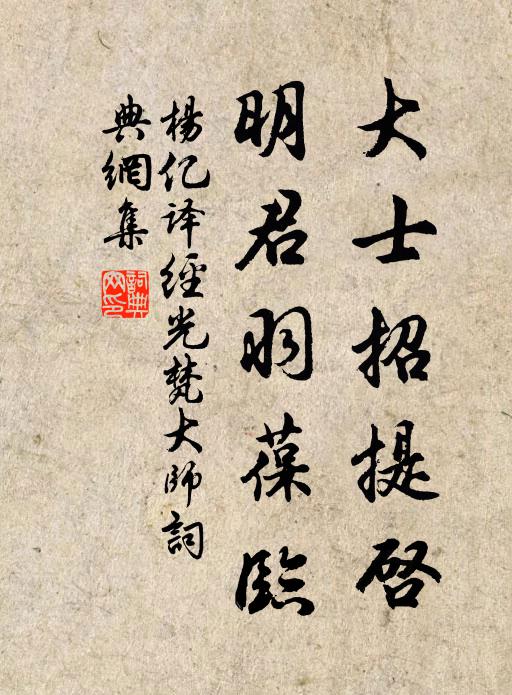 大士招提启
明君羽葆臨
楊亿译經光梵大師詞
典網集
詞典网印